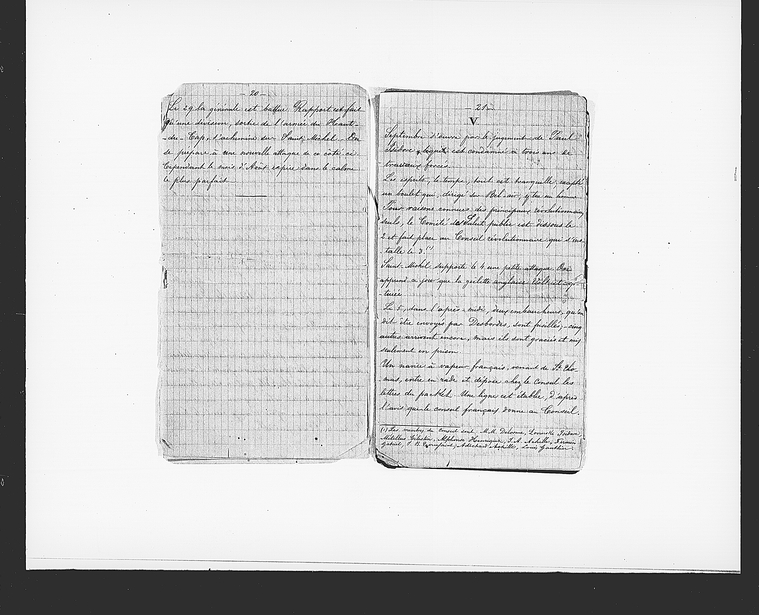 - 20 -
Le 29 la générale est battue. Rapport est fait
qu'une division, sortie de l'armée du Haut-
-du-Cap, s'achemine sur Saint-Michel. On
se prépare à une nouvelle attaque de ce côté-ci.
Cependant le mois d'Août expire dans le calme
le plus parfait.
- 21 -
V
Septembre s'ouvre par le jugement de
est condamné à trois ans de
travaux forcés.
Les esprits, le temps, tout est tranquille, excepté
un boulet qui, dirigé sur Bel-air, y tue un homme.
Pour raisons connues des principaux révolutionnaires
seuls, le Comité de Salut public est dissous le
2 et fait place au Conseil révolutionnaire qui s'ins-
talle le 3. (1)
Saint-Michel supporte le 4 une petite attaque. On
apprend ce jour que la goëlette anglaise est cap-
turée.
Le 5, dans l'après-midi, deux embaucheurs, qu'on
dit être envoyés par Desbordes, sont fusillés. Cinq
autres arrivent encore, mais ils sont graciés et mis
seulement en prison.
Un navire à vapeur français, venant de St. Tho-
mas, entre en rade et dépose chez le Consul les
lettres du packet. Une ligne est établie, d'après
l'avis que le consul français donne au Conseil
(1) Les membres du Conseil sont: M.M. Delorme,
Alphonse Henriquez,
Louis Gauthier.